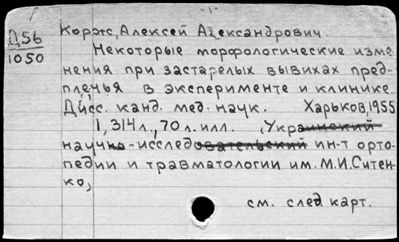 Д56
1050
Корж, Алексей Александрович.
Некоторые морфологические изме-
нения при застарелых вывихах пред-
плечья в эксперименте и клинике.
Дисс. канд. мед. наук. Харьков, 1955
1, 314 л., 70 л. илл. (Украинский
научн-исследовательский ин-т орто-
педии и травматологии им. М.И. Ситен-
ко,
см. след карт.